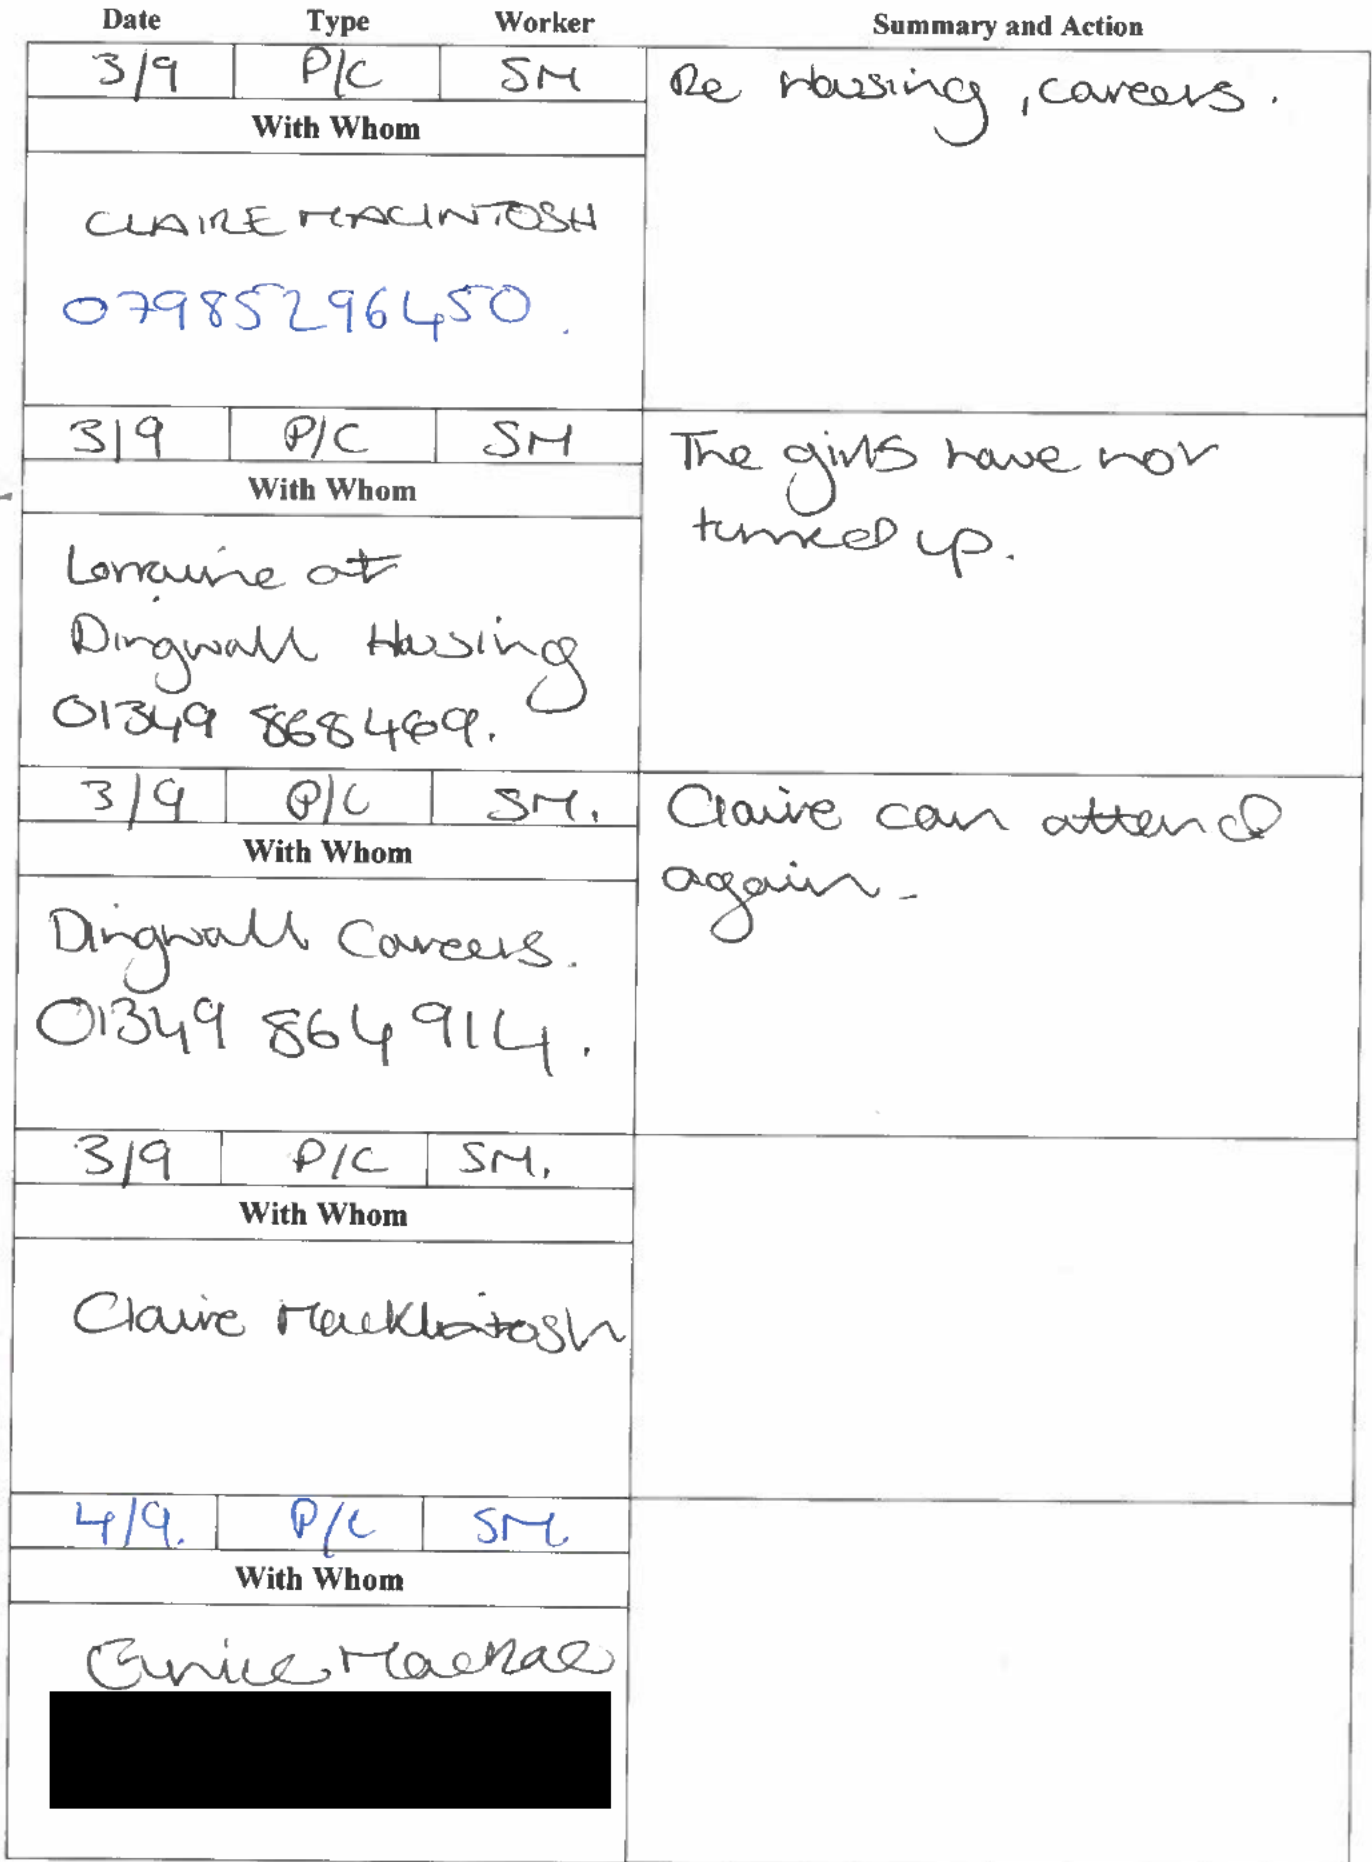 Date Type Worker Summary and Action
3/9 P/C SM Re Housing, careers.
With Whom
CLAIRE MACINTOSH
07985296450.
3/9 P/C SM The girls have not
With Whom turned up.
Lorraine at
Dingwall Housing
01349 868469.
3/9 P/C SM. Claire can attend
With Whom again-
Dingwall Careers.
01349 864914.
3/9 P/C SM.
With Whom
Claire MacKintosh
4/9. P/C SM
With Whom
Eunice MacRae